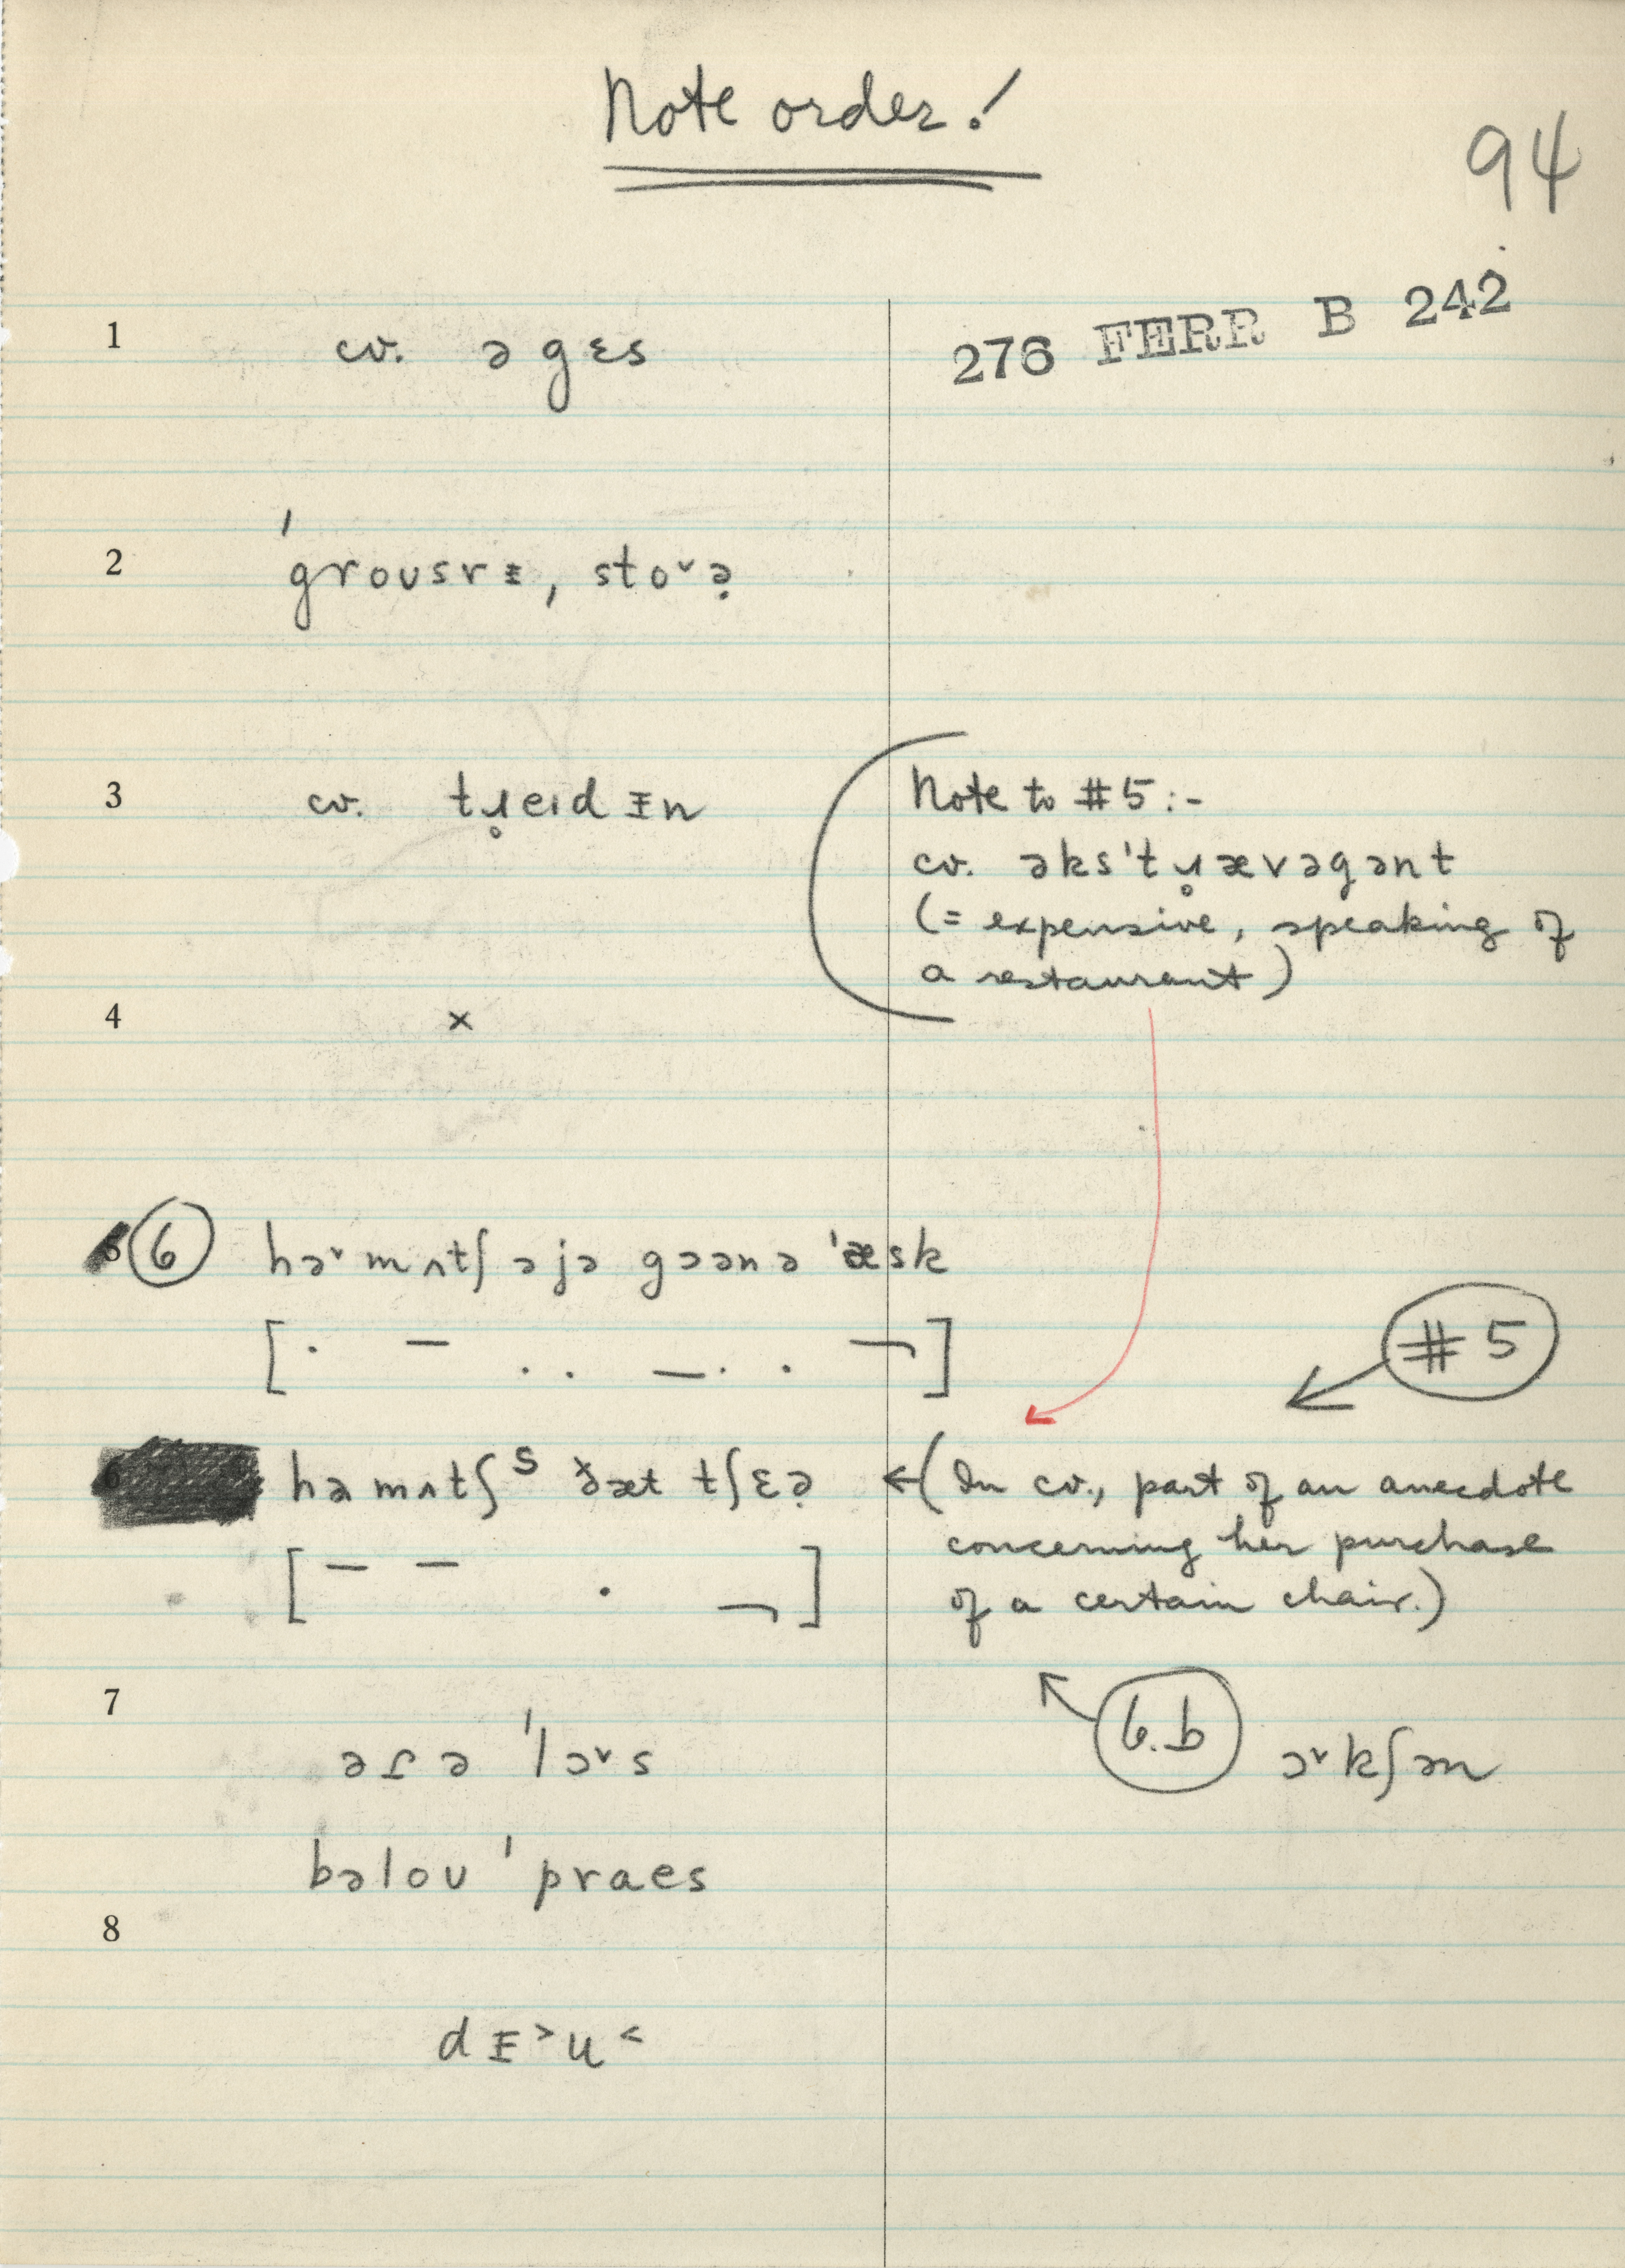 Note order!
94
276 FERR B 242
1 cv. əgɛs
2 ˈgroʊsrɪ, stoᵛə̣
3 cv. tɹ̥eɪdɪn
Note to #5:-
cv. əks'tɹ̥ævəgənt
(= expensive, speaking of
a restaurant)
4 ×
6 həᵛmʌtʃ əjə gɔənə 'æsk
#5
hə mʌtʃ s ðæt tʃɛə̣ ←(In cv., part of an anecdote
concerning her purchase
of a certain chair.)
7
6.b
əɾə 'lɔᵛs ɔᵛkʃən
bəloʊ 'praes
8
dɪ˃u˂